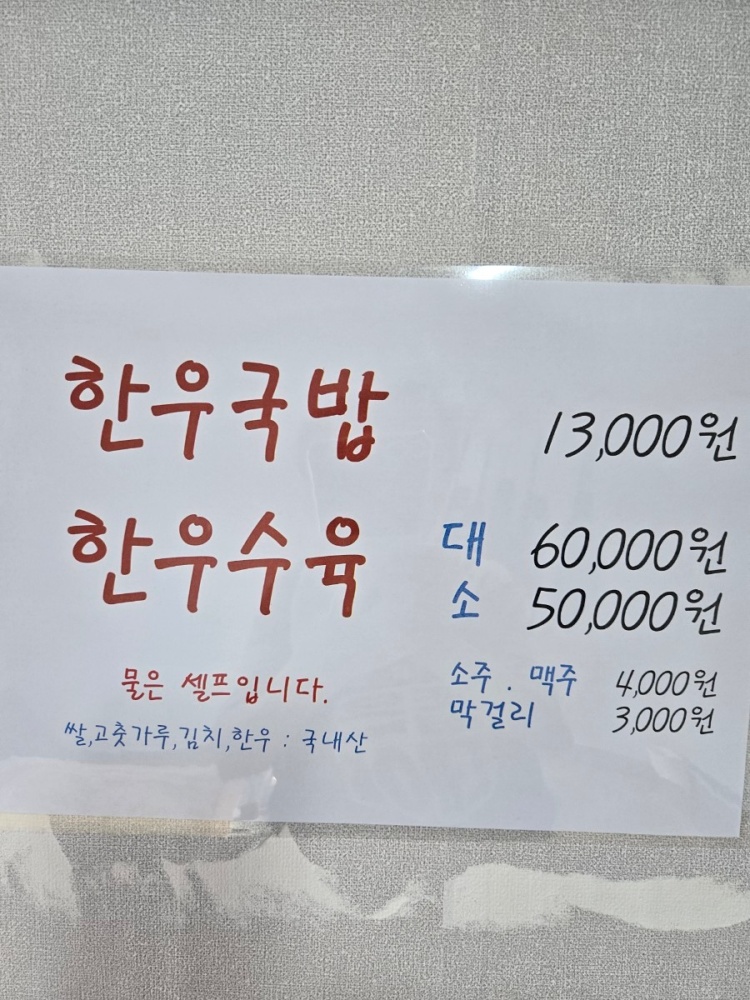 한우국밥 13,000원
한우수육 대 60,000원
소 50,000원
물은 셀프입니다.
쌀,고춧가루,김치,한우 : 국내산
소주 . 맥주 4,000원
막걸리 3,000원